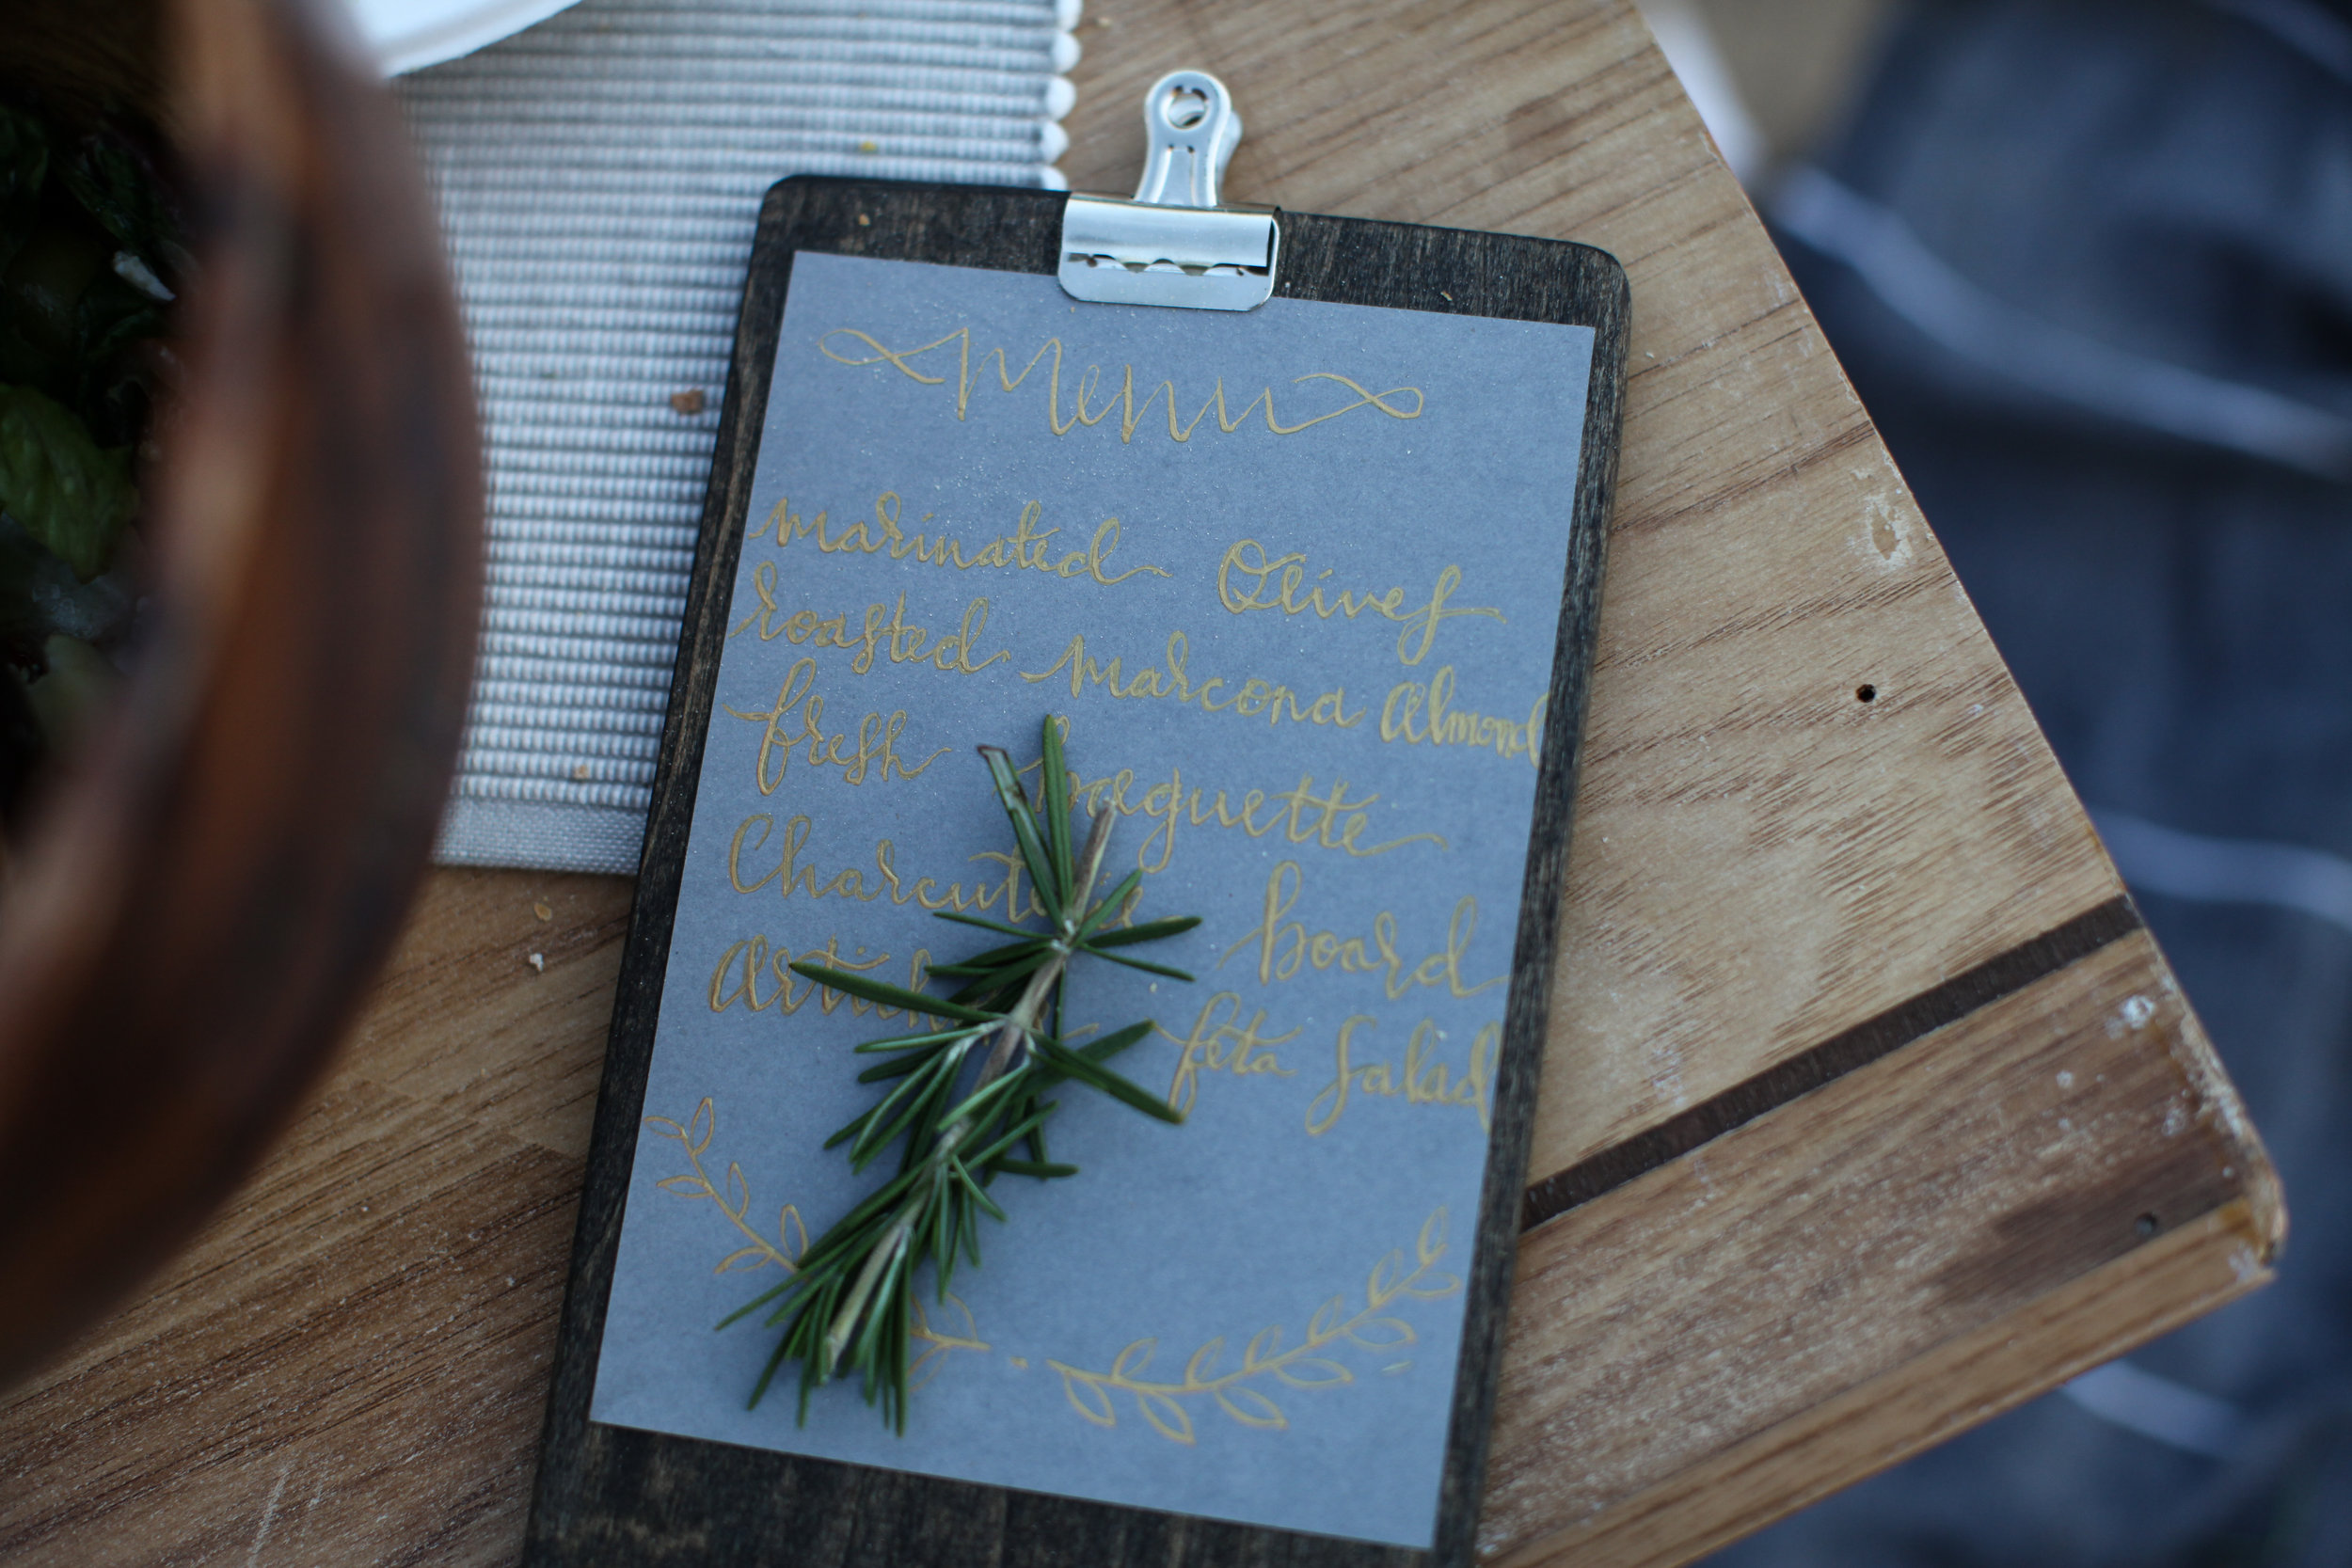 Menu
marinated Olives
roasted marcona almond
fresh baguette
Charcuterie board
feta Salad